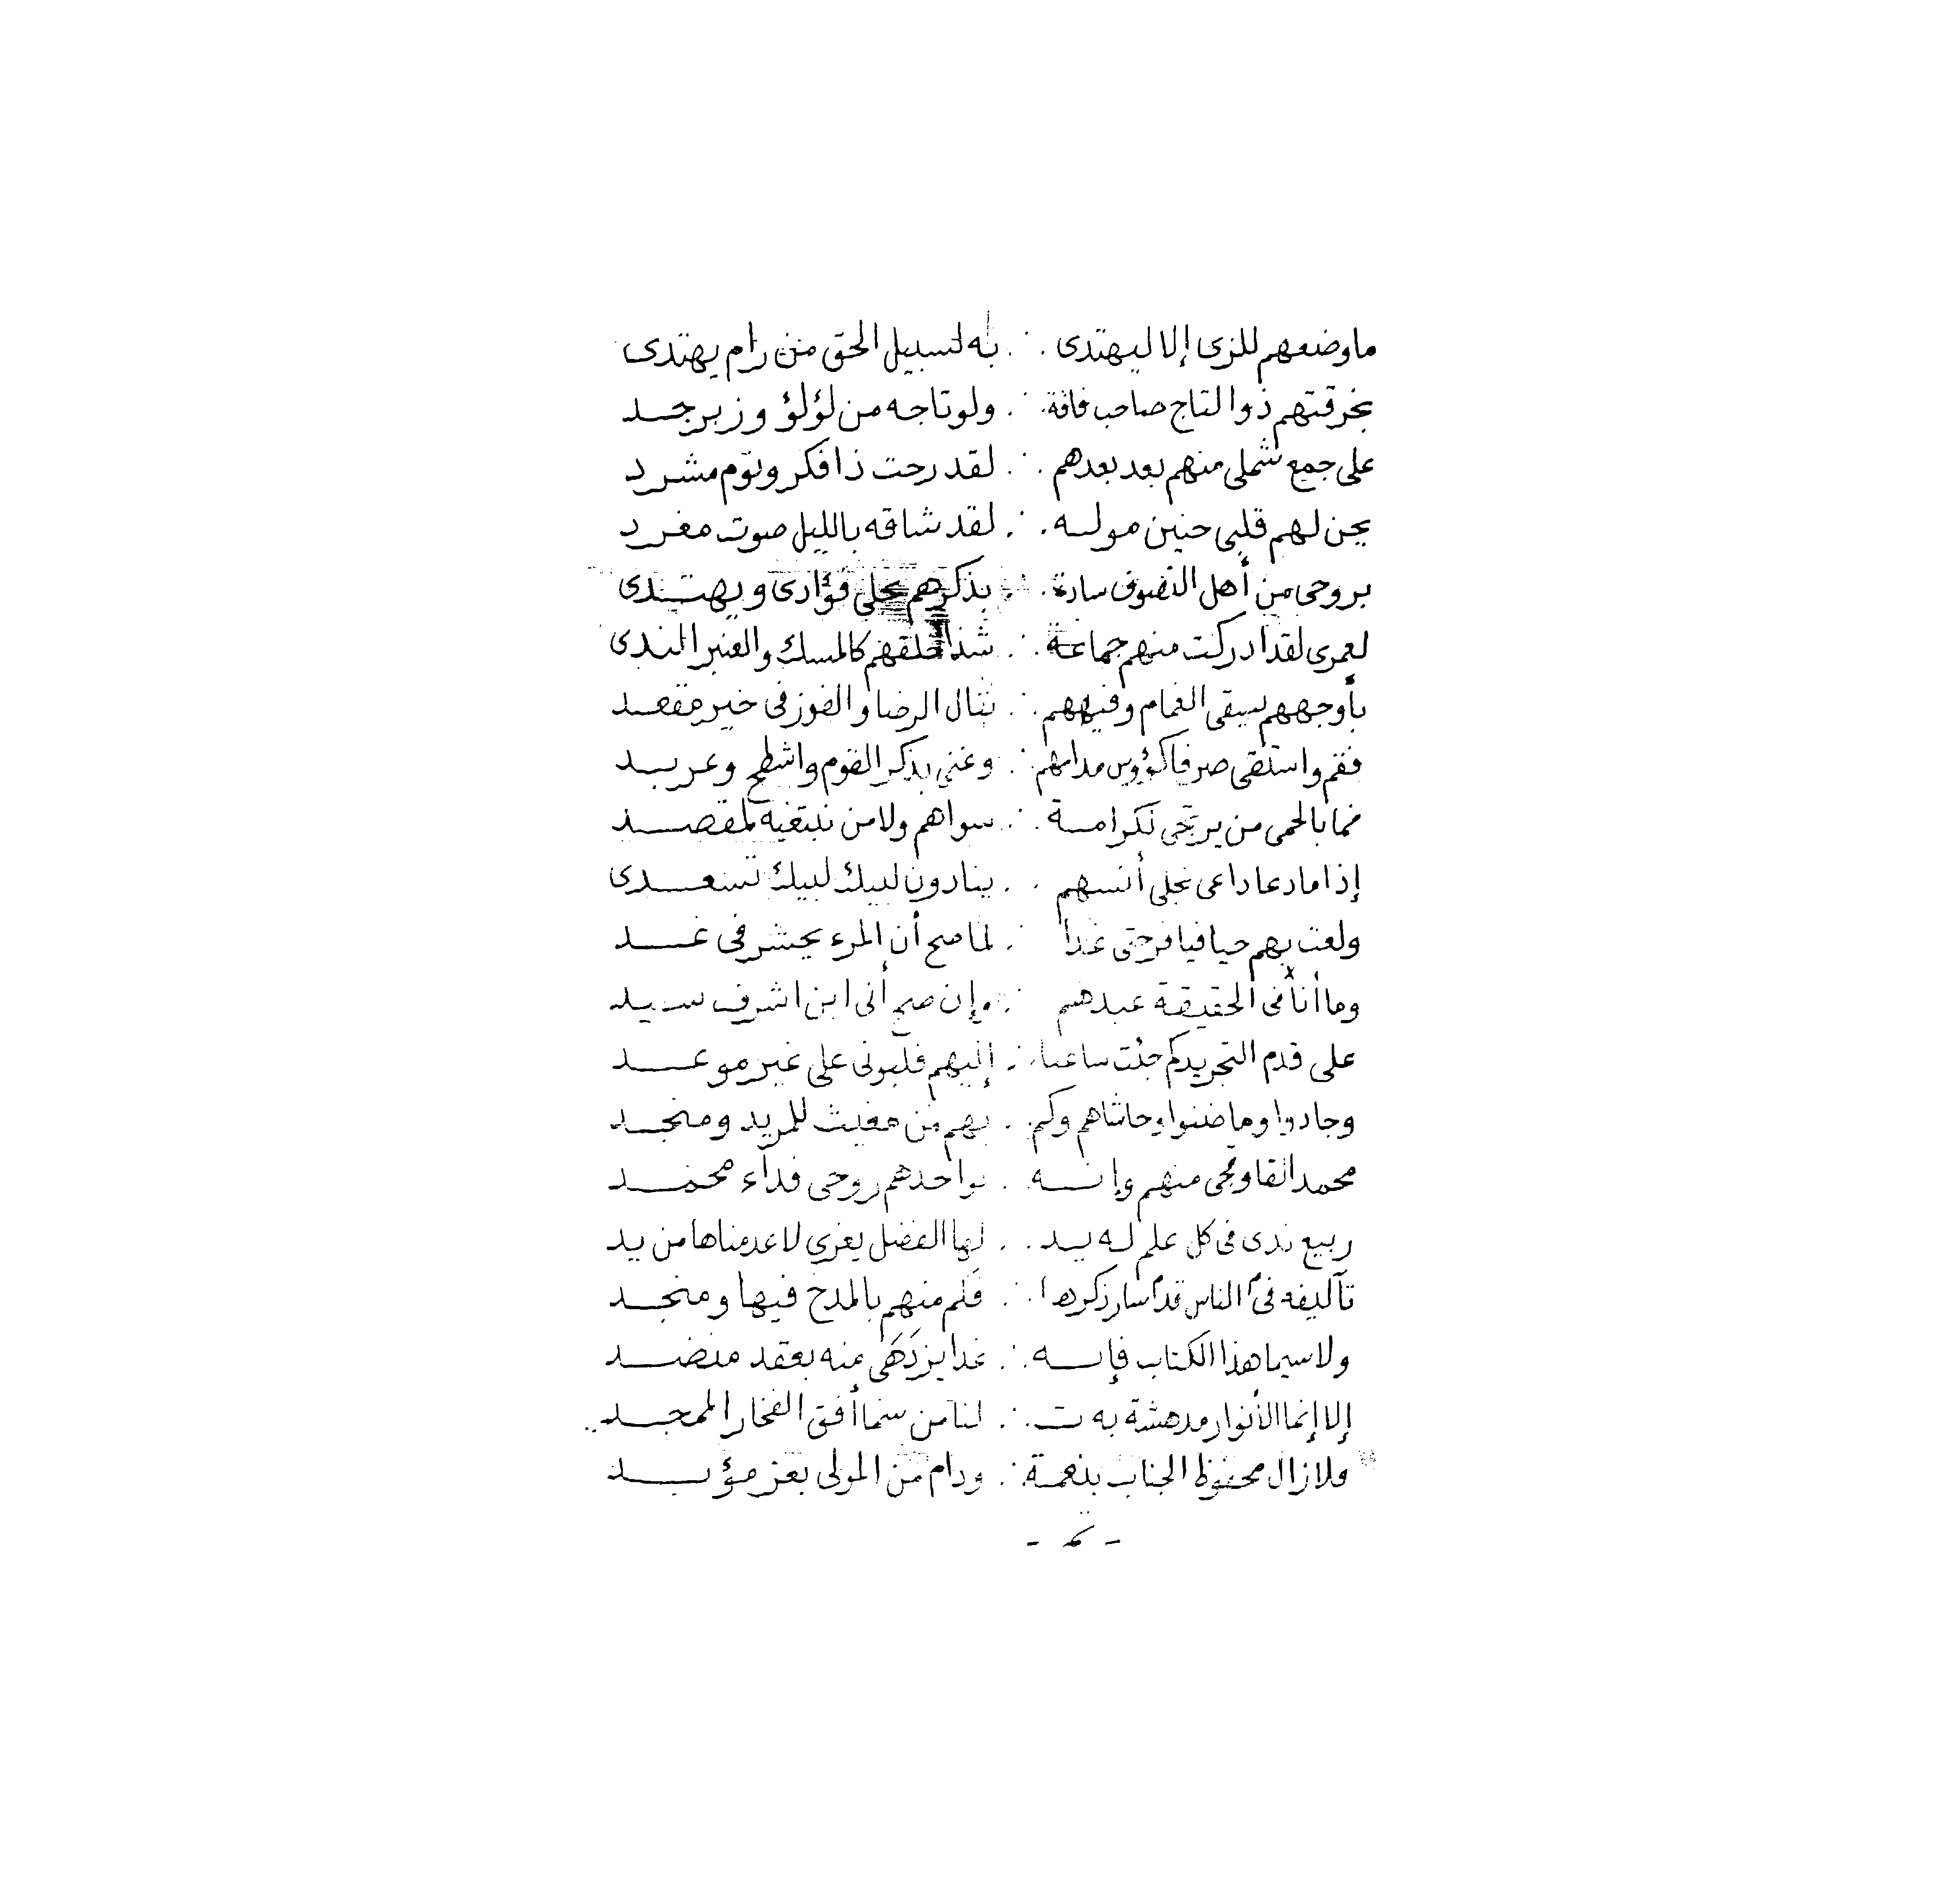 ما وضعهم للزى إلا ليهتدى ∴ به لسبيل الحق من رام يهتدى
بخرقتهم ذو التاج صاحب فاقة ∴ ولو تاجه من لؤلؤ وزبرجد
على جمع شملى منهم بعد بعدهم ∴ لقد رحت ذا فكر ونوم مشرد
يحن لهم قلبى حنين موله ∴ لقد شاقه بالليل صوت مغرد
بروحى من أهل التصوف سادة ∴ بذكرهم يجلى فؤادى ويهتدى
لعمرى لقد ادركت منهم جماعة ∴ شذا خلقهم كالمسك والعنبر الندى
بأوجههم يسقى الغمام وفيهم ∴ ننال الرضا والفوز فى خير مقعد
فقم واسقنى صرفا كؤوس مدامهم ∴ وغنى بذكر القوم واشطح وعربد
فما بالحمى من يرتجى لكرامة ∴ سواهم ولا من نبتغيه لمقصد
إذا ما دعا داعى تجلى أنسهم ∴ ينادون لبيك لبيك تسعدى
ولعت بهم حيا فيا فرحتى غدا ∴ لما صح أن المرء يحشر فى غد
وما أنا فى الحقيقة عبدهم ∴ وإن صح أنى ابن اشرف سيد
على قدم التجريد كم جئت ساعيا ∴ إليهم فلبونى على غير موعد
وجادوا وما ضنوا وحاشاهم وكم ∴ بهم من مغيث للمريد ومنجد
محمد القاوقجى منهم وإنه ∴ بواحدهم روحى فداء محمد
ربيع ندى فى كل علم له يد ∴ لها الفضل يعزى لا عدمناها من يد
تآليفه فى الناس قد سار ذكرها ∴ فلم منهم بالمدح فيها ومنجد
ولا سيما هذا الكتاب فإنه ∴ غدا يزدهى منه بعقد منضد
إلا إنما الأنوار مدهشة به ت ∴ لنا من سما أفق الفخار الممجد
فلا زال محفوظ الجناب بنعمة ∴ ودام من المولى بعز مؤبد